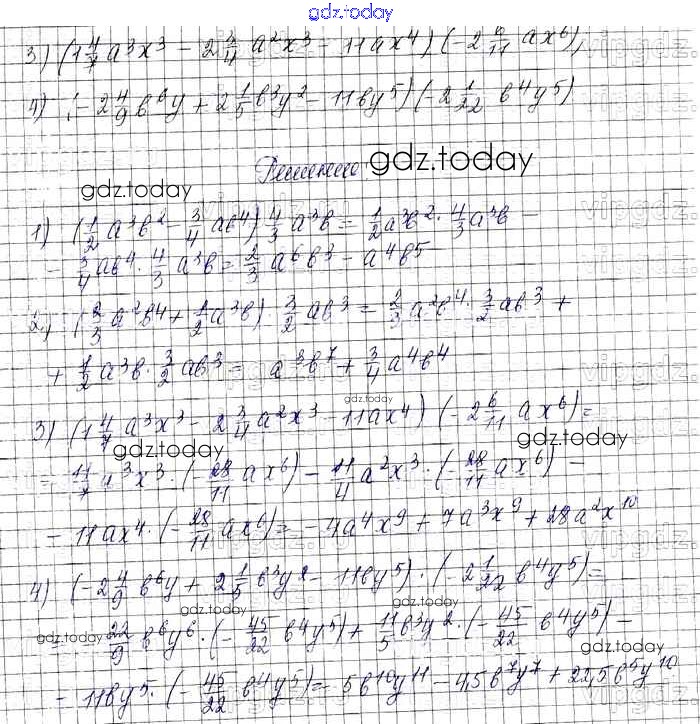 gdz.today
3) (1 4/7 a³x³ - 2 3/4 a²x³ - 11ax⁴) (-2 6/11 ax⁶);
4) (-2 4/9 в⁶y + 2 1/5 в³y² - 11вy⁵) (-2 1/22 в⁴y⁵)
Решение: gdz.today
gdz.today
1) (1/2 a³в² - 3/4 aв⁴) 4/3 a³в = 1/2 a³в² · 4/3 a³в -
- 3/4 aв⁴ · 4/3 a³в = 2/3 a⁶в³ - a⁴в⁵
2) (2/3 a²в⁴ + 1/2 a³в) · 3/2 aв³ = 2/3 a²в⁴ · 3/2 aв³ +
+ 1/2 a³в · 3/2 aв³ = a³в⁷ + 3/4 a⁴в⁴
gdz.today
3) (1 4/7 a³x³ - 2 3/4 a²x³ - 11ax⁴) (-2 6/11 ax⁶) =
gdz.today gdz.today
= 11/7 a³x³ · (- 28/11 ax⁶) - 11/4 a²x³ · (- 28/11 ax⁶) -
- 11ax⁴ · (- 28/11 ax⁶) = -4a⁴x⁹ + 7a³x⁹ + 28a²x¹⁰
4) (-2 4/9 в⁶y + 2 1/5 в³y² - 11вy⁵) · (-2 1/22 в⁴y⁵) =
gdz.today gdz.today
= - 22/9 в⁶y⁶ · (- 45/22 в⁴y⁵) + 11/5 в³y² · (- 45/22 в⁴y⁵) -
gdz.today gdz.today
- 11вy⁵ · (- 45/22 в⁴y⁵) = 5в¹⁰y¹¹ - 4,5в⁷y⁷ + 22,5в⁵y¹⁰